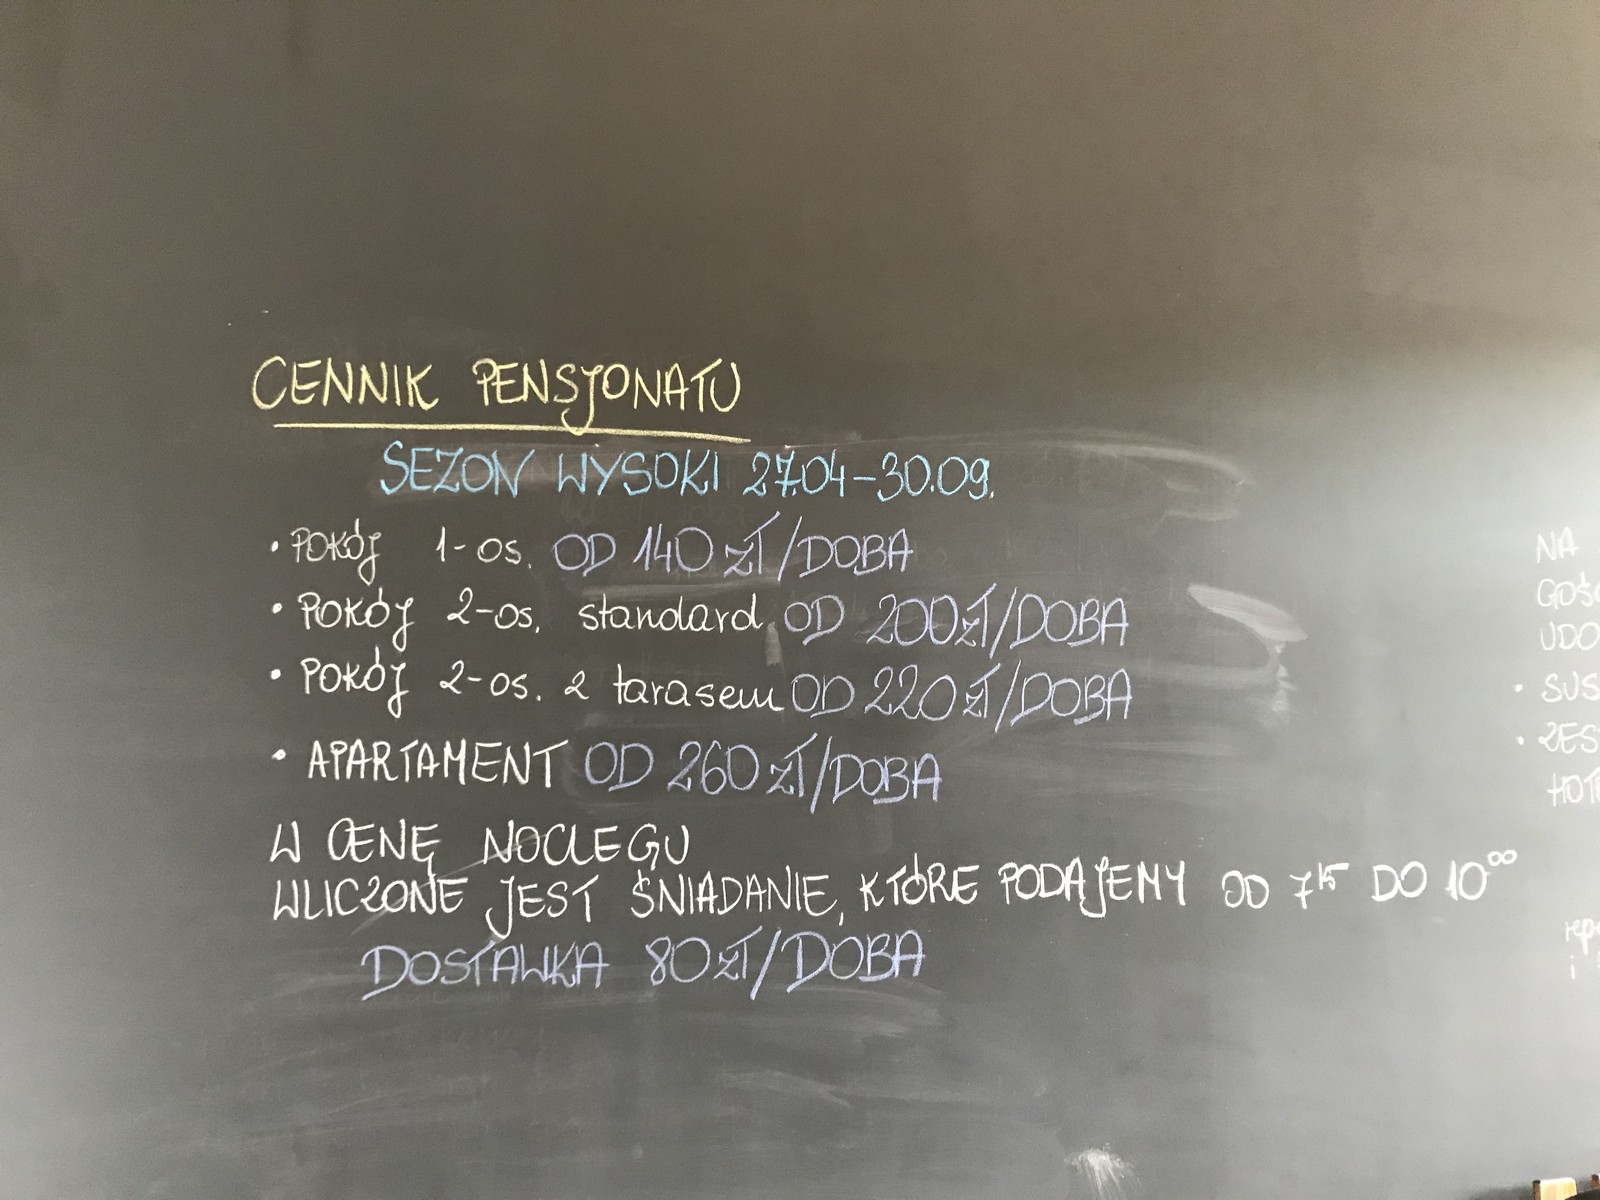 CENNIK PENSJONATU
SEZON WYSOKI 27.04-30.09.
• POKÓJ 1-os. OD 140 ZŁ/DOBA
• POKÓJ 2-os. standard OD 200 ZŁ/DOBA
• POKÓJ 2-os. z tarasem OD 220 ZŁ/DOBA
• APARTAMENT OD 260 ZŁ/DOBA
W CENĘ NOCLEGU
WLICZONE JEST ŚNIADANIE, KTÓRE PODAJEMY OD 7¹⁵ DO 10⁰⁰
DOSTAWKA 80 ZŁ/DOBA
NA